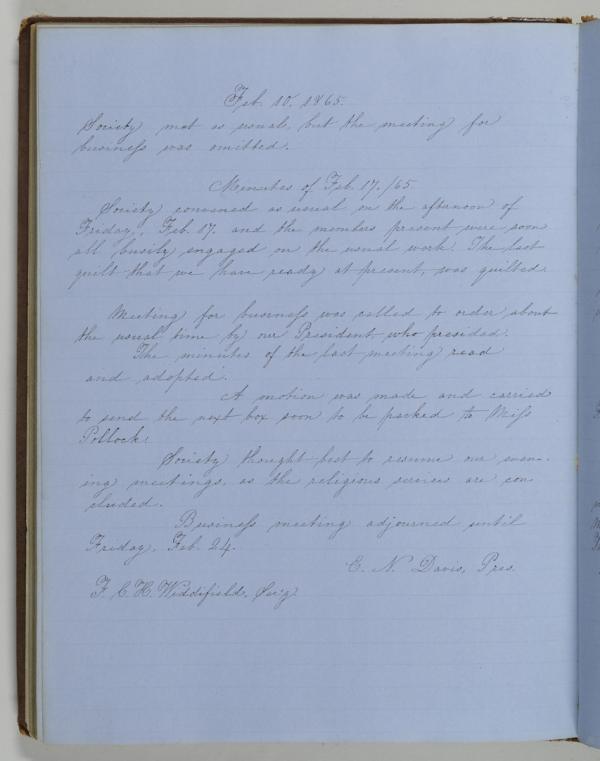 Feb. 10. 1865.
Society met as usual, but the meeting for
business was omitted.
Minutes of Feb. 17. /65.
Society convened as usual on the afternoon of
Friday, Feb. 17. and the members present were soon
all busily engaged on the usual work. The last
quilt that we have ready at present, was quilted.
Meeting for business was called to order, about
the usual time by our President, who presided.
The minutes of the last meeting read
and adopted.
A motion was made and carried
to send the next box soon to be packed to Miss
Pollock.
Society thought best to resume our even-
ing meetings, as the religious services are con
cluded.
Business meeting adjourned until
Friday, Feb. 24.
E. N. Davis, Pres.
F. C. H. Widdifield, Sec'y